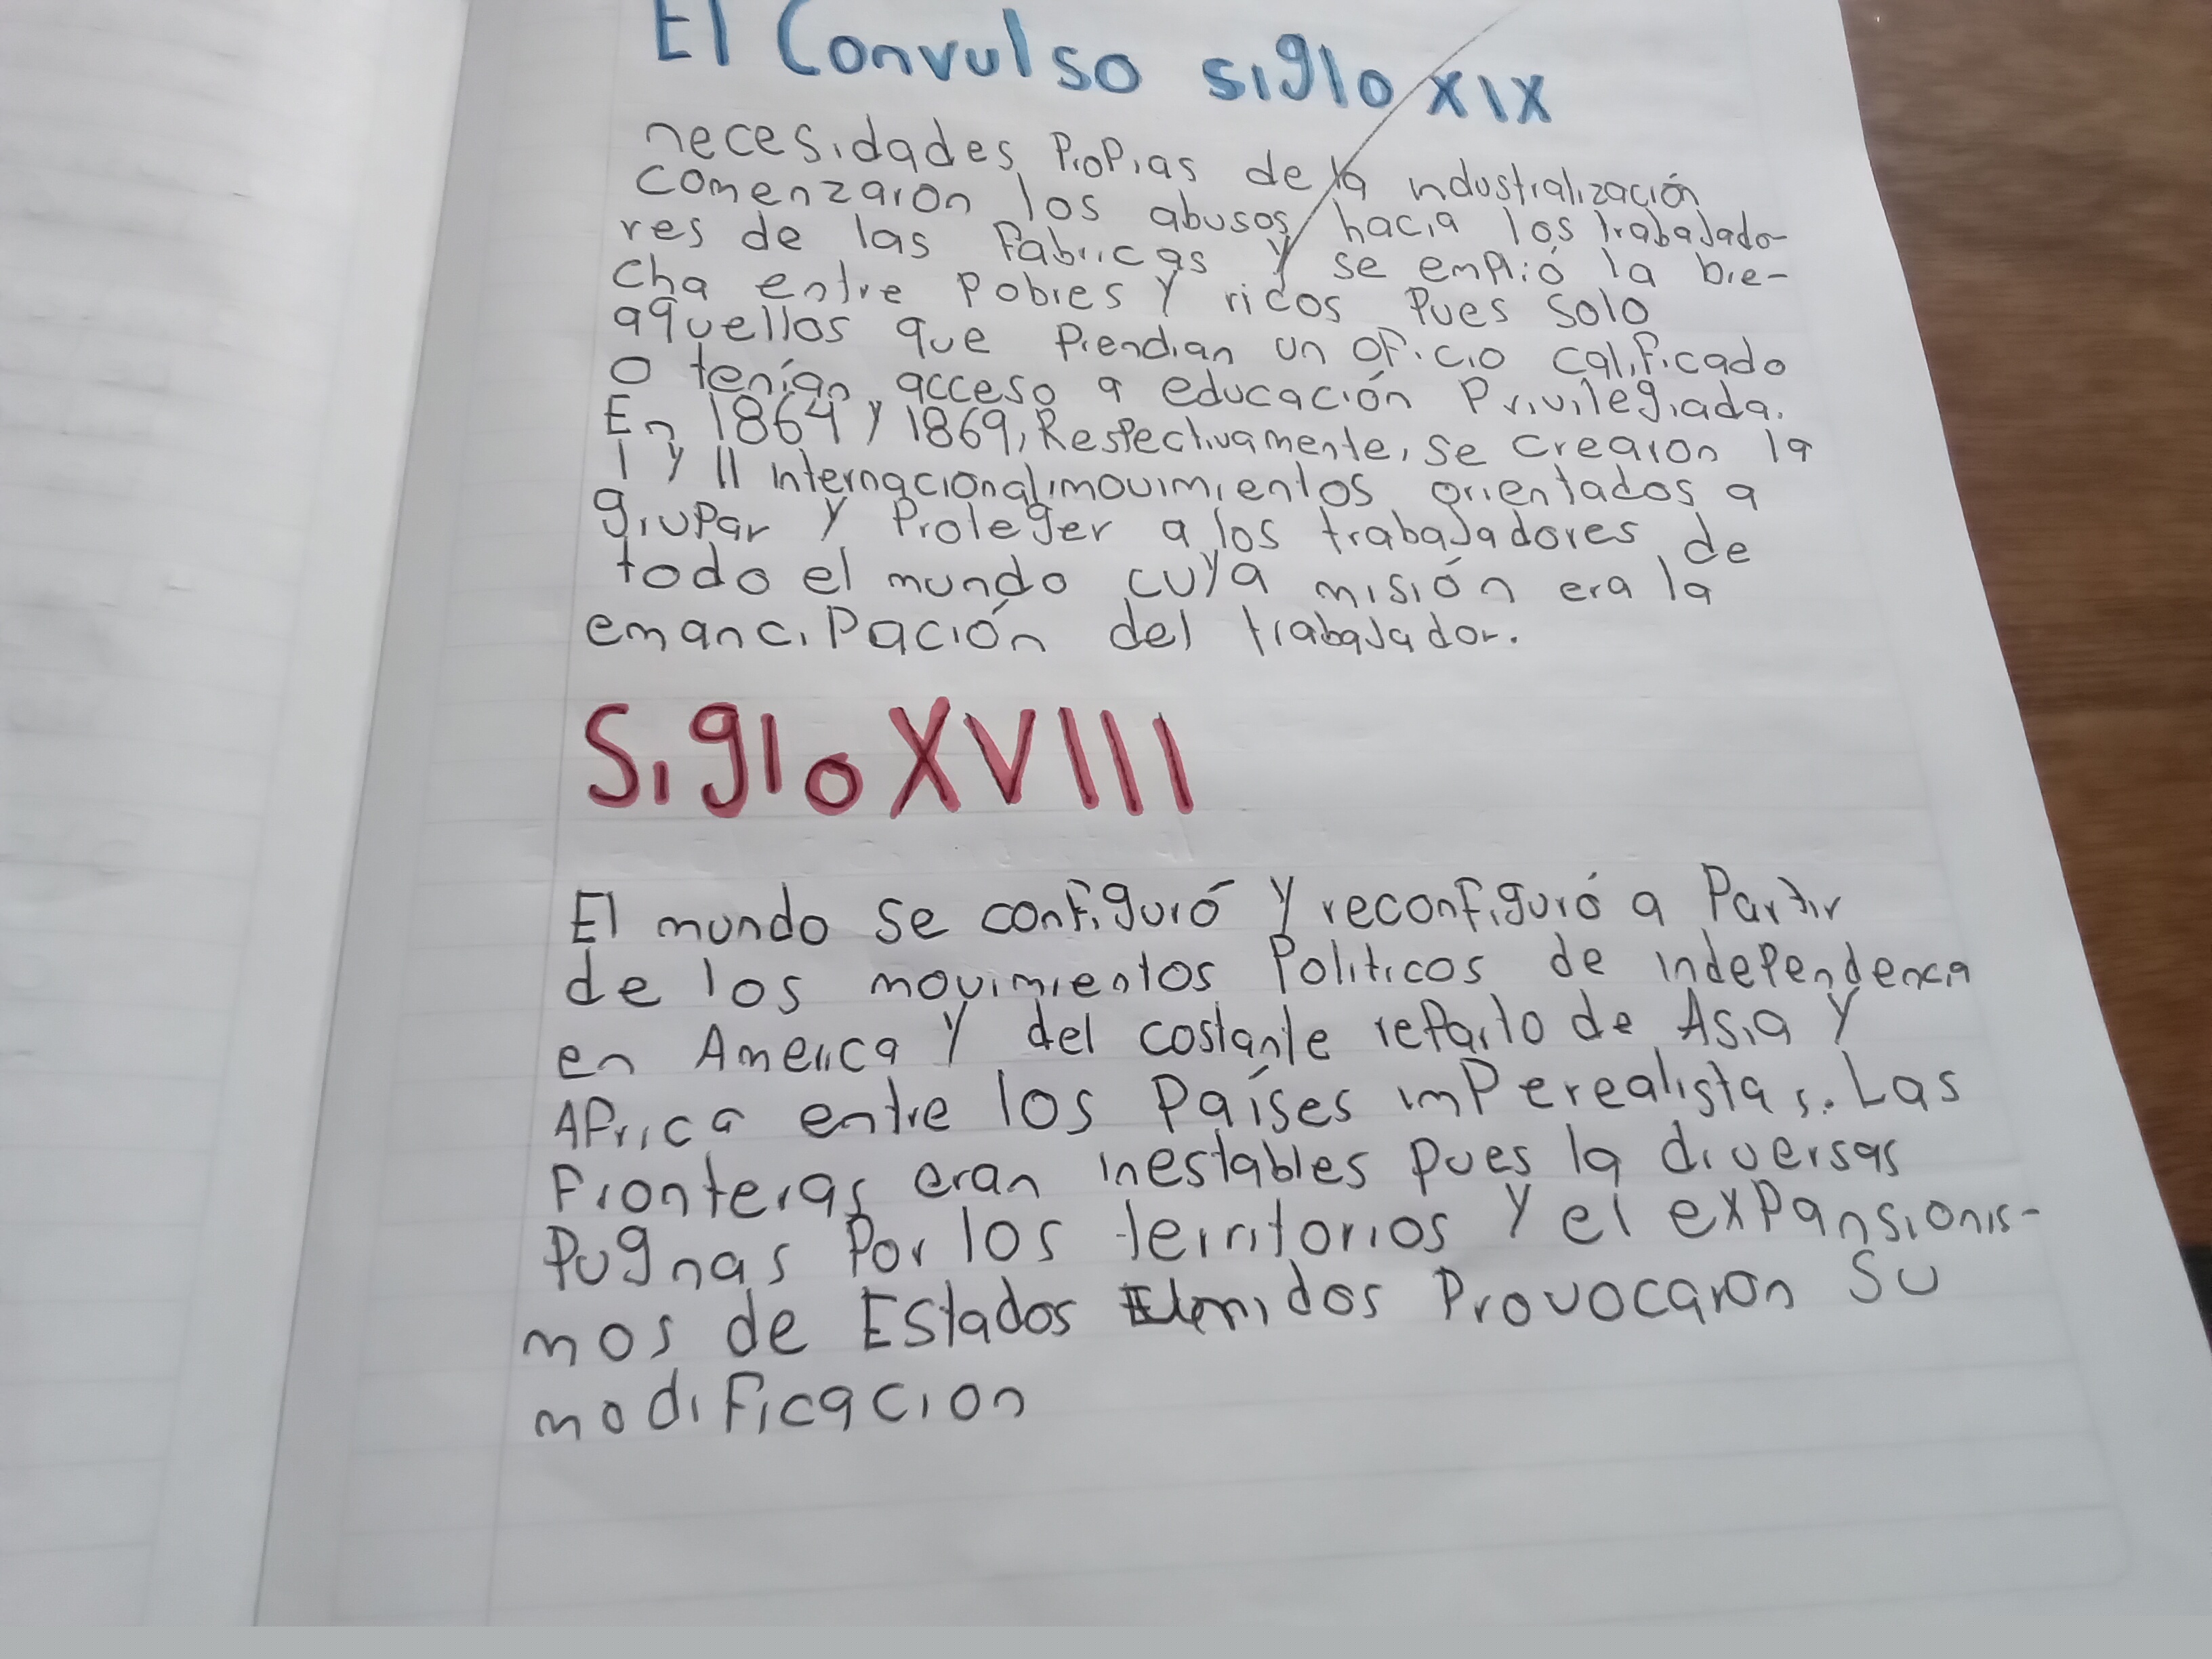 El Convulso siglo XIX
necesidades Propias de la industrialización
comenzaron los abusos hacia los trabajado-
res de las Fabricas y se emplió la bre-
cha entre Pobres y ricos Pues Solo
aquellos que Prendian un oFicio caliFicado
o tenían acceso a educación Privilegiada.
En 1864 y 1869, Respectivamente, se crearon la
I y II internacional, movimientos orientados a
grupar y Proteger a los trabajadores de
todo el mundo cuya misión era la
emanciPación del trabajador.
Siglo XVIII
El mundo se conFiguró y reconFiguró a Partir
de los movimientos Politicos de independencia
en America y del costante reParto de Asia y
AFrica entre los Países imPerealistas. Las
Fronteras eran inestables pues la diversas
Pugnas Por los territorios y el exPansionis-
mos de Estados Unidos Provocaron Su
modiFicacion